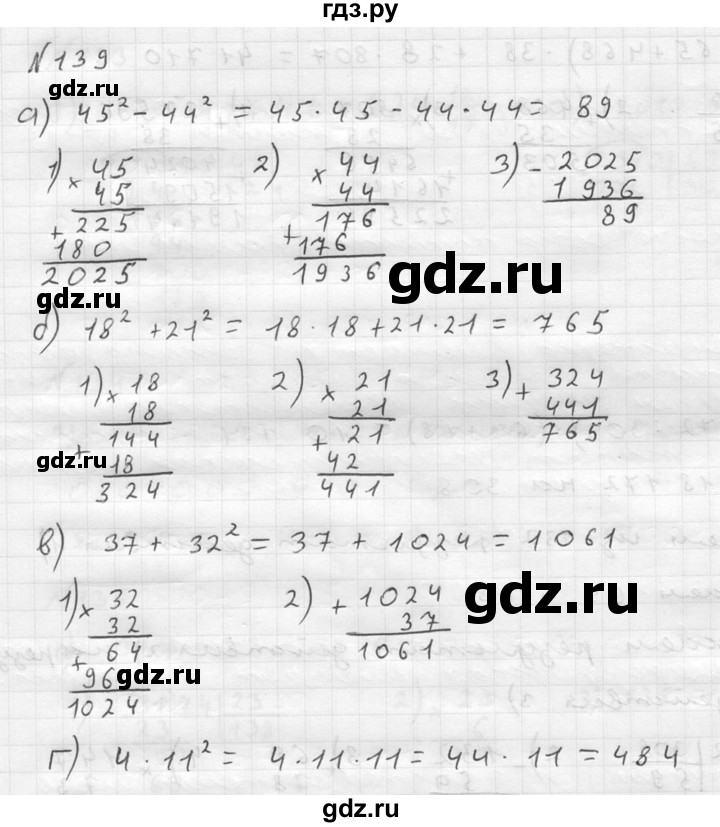 гдз.ру
№139
gdz.ru
а) 45² - 44² = 45·45 - 44·44 = 89
1) × 45
45
+ 225
180
2025
2) × 44
44
176
+ 176
1936
3) - 2025
1936
89
gdz.ru
б) 18² + 21² = 18·18 + 21·21 = 765
1) × 18
18
144
+ 18
324
gdz.ru
2) × 21
21
+ 21
42
441
3) + 324
441
765
в) 37 + 32² = 37 + 1024 = 1061
1) × 32
32
64
+ 96
1024
gdz.ru
2) + 1024
37
1061
gdz.ru
г) 4·11² = 4·11·11 = 44·11 = 484
gdz.ru